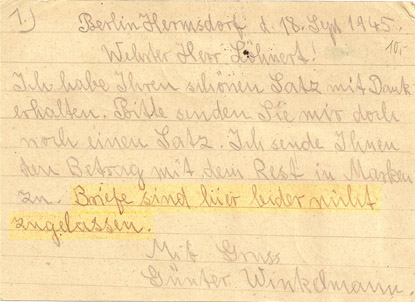 1.) Berlin Hermsdorf d. 18. Sept 1945.
10,-
Werter Herr Löhnert!
Ich habe Ihren schönen Satz mit Dank
erhalten. Bitte senden Sie mir doch
noch einen Satz. Ich sende Ihnen
den Betrag mit dem Rest in Marken
zu. Briefe sind hier leider nicht
zugelassen.
Mit Gruss
Günter Winkelmann.